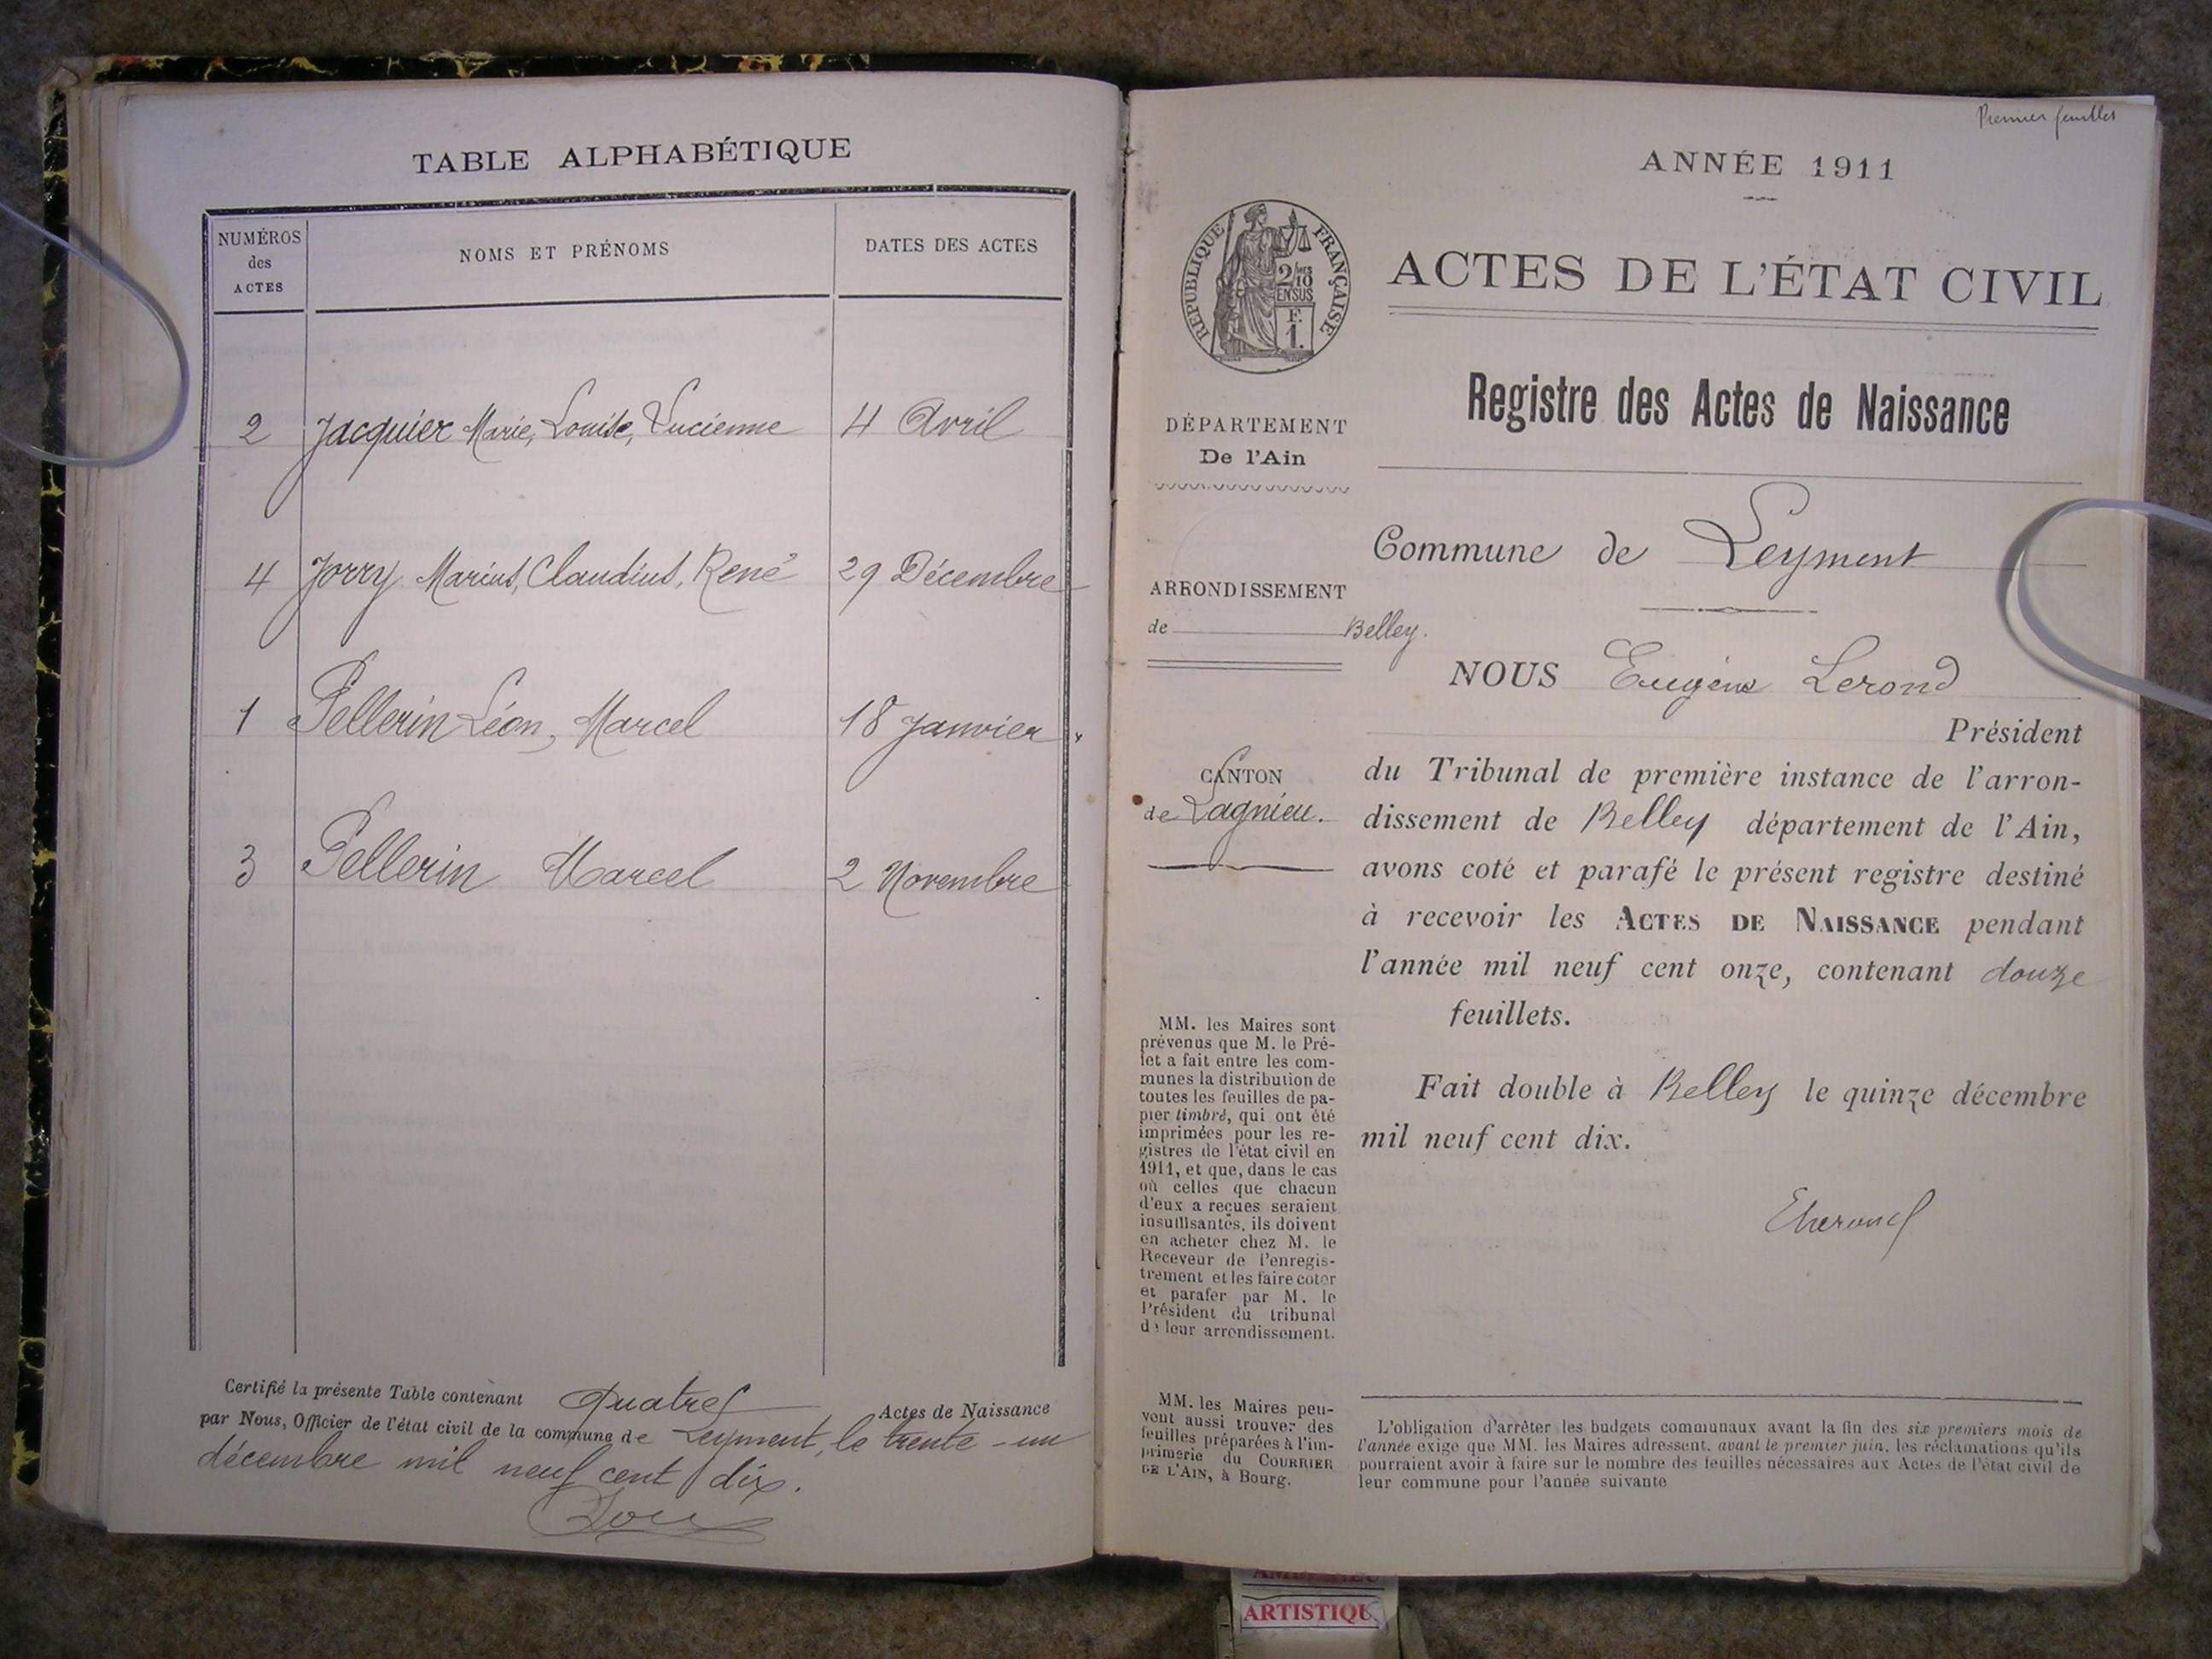 TABLE ALPHABÉTIQUE
NUMÉROS
des
ACTES
NOMS ET PRÉNOMS
DATES DES ACTES
2 Jacquier Marie, Louise, Lucienne 4 Avril
4 Jorry Marius, Claudius, René 29 Décembre
1 Pellerin Léon, Marcel 18 Janvier
3 Pellerin Marcel 2 Novembre
Certifié la présente Table contenant Quatre Actes de Naissance
par Nous, Officier de l'état civil de la commune de Leyment, le trente-un
décembre mil neuf cent dix.
Premier feuillet
ANNÉE 1911
RÉPUBLIQUE FRANÇAISE
2/10 EN SUS
F.
1.
ACTES DE L'ÉTAT CIVIL
Registre des Actes de Naissance
DÉPARTEMENT
De l'Ain
Commune de Leyment
ARRONDISSEMENT
de Belley.
NOUS Eugène Lerond
Président
CANTON
de Lagnieu.
du Tribunal de première instance de l'arron-
dissement de Belley département de l'Ain,
avons coté et parafé le présent registre destiné
à recevoir les ACTES DE NAISSANCE pendant
l'année mil neuf cent onze, contenant douze
feuillets.
Fait double à Belley le quinze décembre
mil neuf cent dix.
MM. les Maires sont
prévenus que M. le Pré-
fet a fait entre les com-
munes la distribution de
toutes les feuilles de pa-
pier timbré, qui ont été
imprimées pour les re-
gistres de l'état civil en
1911, et que, dans le cas
où celles que chacun
d'eux a reçues seraient
insuffisantes, ils doivent
en acheter chez M. le
Receveur de l'enregis-
trement et les faire coter
et parafer par M. le
Président du tribunal
de leur arrondissement.
MM. les Maires peu-
vent aussi trouver des
feuilles préparées à l'im-
primerie du COURRIER
DE L'AIN, à Bourg.
L'obligation d'arrêter les budgets communaux avant la fin des six premiers mois de
l'année exige que MM. les Maires adressent, avant le premier juin, les réclamations qu'ils
pourraient avoir à faire sur le nombre des feuilles nécessaires aux Actes de l'état civil de
leur commune pour l'année suivante
ARTISTIQU